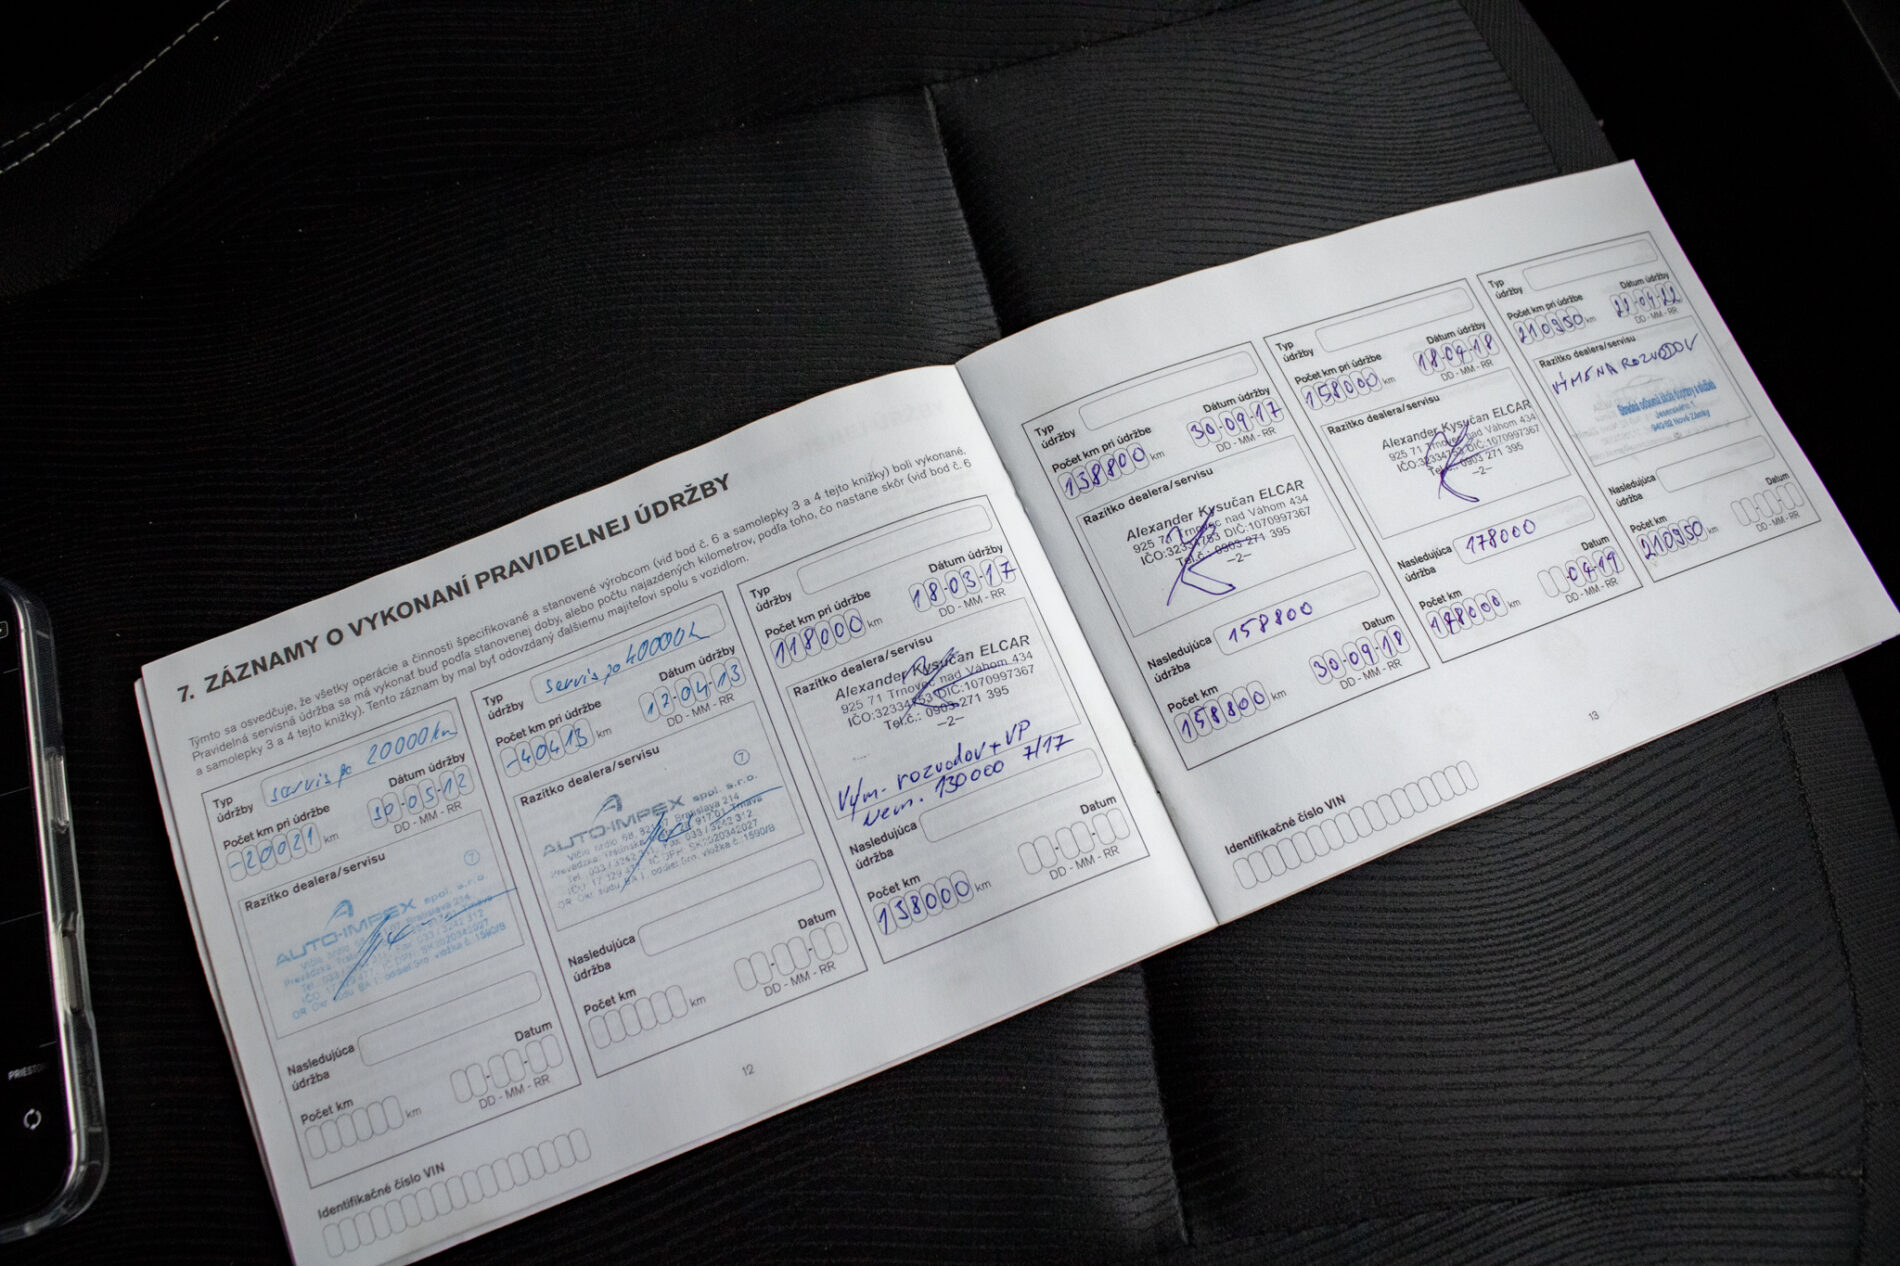 7. ZÁZNAMY O VYKONANÍ PRAVIDELNEJ ÚDRŽBY
Týmto sa osvedčuje, že všetky operácie a činnosti špecifikované a stanovené výrobcom (viď bod č. 6 a samolepky 3 a 4 tejto knižky) boli vykonané.
Pravidelná servisná údržba sa má vykonať buď podľa stanovenej doby, alebo počtu najazdených kilometrov, podľa toho, čo nastane skôr (viď bod č. 6
a samolepky 3 a 4 tejto knižky). Tento záznam by mal byť odovzdaný ďalšiemu majiteľovi spolu s vozidlom.
Typ údržby
servis po 20000 km
Počet km pri údržbe
-20021 km
Dátum údržby
10-05-12
DD - MM - RR
Razítko dealera/servisu
7
AUTO-IMPEX spol. s.r.o.
Nasledujúca údržba
Počet km
km
Datum
DD - MM - RR
Identifikačné číslo VIN
Typ údržby
servis po 40000 k
Počet km pri údržbe
-40413 km
Dátum údržby
12-04-13
DD - MM - RR
Razítko dealera/servisu
7
AUTO-IMPEX spol. s.r.o.
Nasledujúca údržba
Počet km
km
Datum
DD - MM - RR
12
Typ údržby
Počet km pri údržbe
118000 km
Dátum údržby
18-03-17
DD - MM - RR
Razítko dealera/servisu
Alexander Kysučan ELCAR
925 71 Trnovec nad Váhom 434
IČO:32334753 DIČ:1070997367
Tel.č.: 0903 271 395
–2–
Vým. rozvodov + VP
130000 7/17
Nasledujúca údržba
Počet km
138000 km
Datum
DD - MM - RR
Typ údržby
Počet km pri údržbe
138800 km
Dátum údržby
30-09-17
DD - MM - RR
Razítko dealera/servisu
Alexander Kysučan ELCAR
925 71 Trnovec nad Váhom 434
IČO:32334753 DIČ:1070997367
Tel.č.: 0903 271 395
–2–
Nasledujúca údržba
158800
Počet km
158800 km
Datum
30-09-18
DD - MM - RR
Identifikačné číslo VIN
Typ údržby
Počet km pri údržbe
158000 km
Dátum údržby
18-04-18
DD - MM - RR
Razítko dealera/servisu
Alexander Kysučan ELCAR
925 71 Trnovec nad Váhom 434
IČO:32334753 DIČ:1070997367
Tel.č.: 0903 271 395
–2–
Nasledujúca údržba
178000
Počet km
178000 km
Datum
04-19
DD - MM - RR
13
Typ údržby
Počet km pri údržbe
210950 km
Dátum údržby
22-04-22
DD - MM - RR
Razítko dealera/servisu
VÝMENA ROZVODOV
Nasledujúca údržba
Počet km
210950 km
Datum
DD - MM - RR